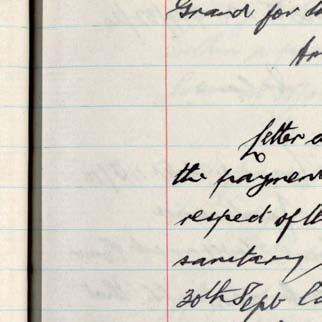 Grand for
Letter
the payment
respect of th
sanitary
30th Sept la